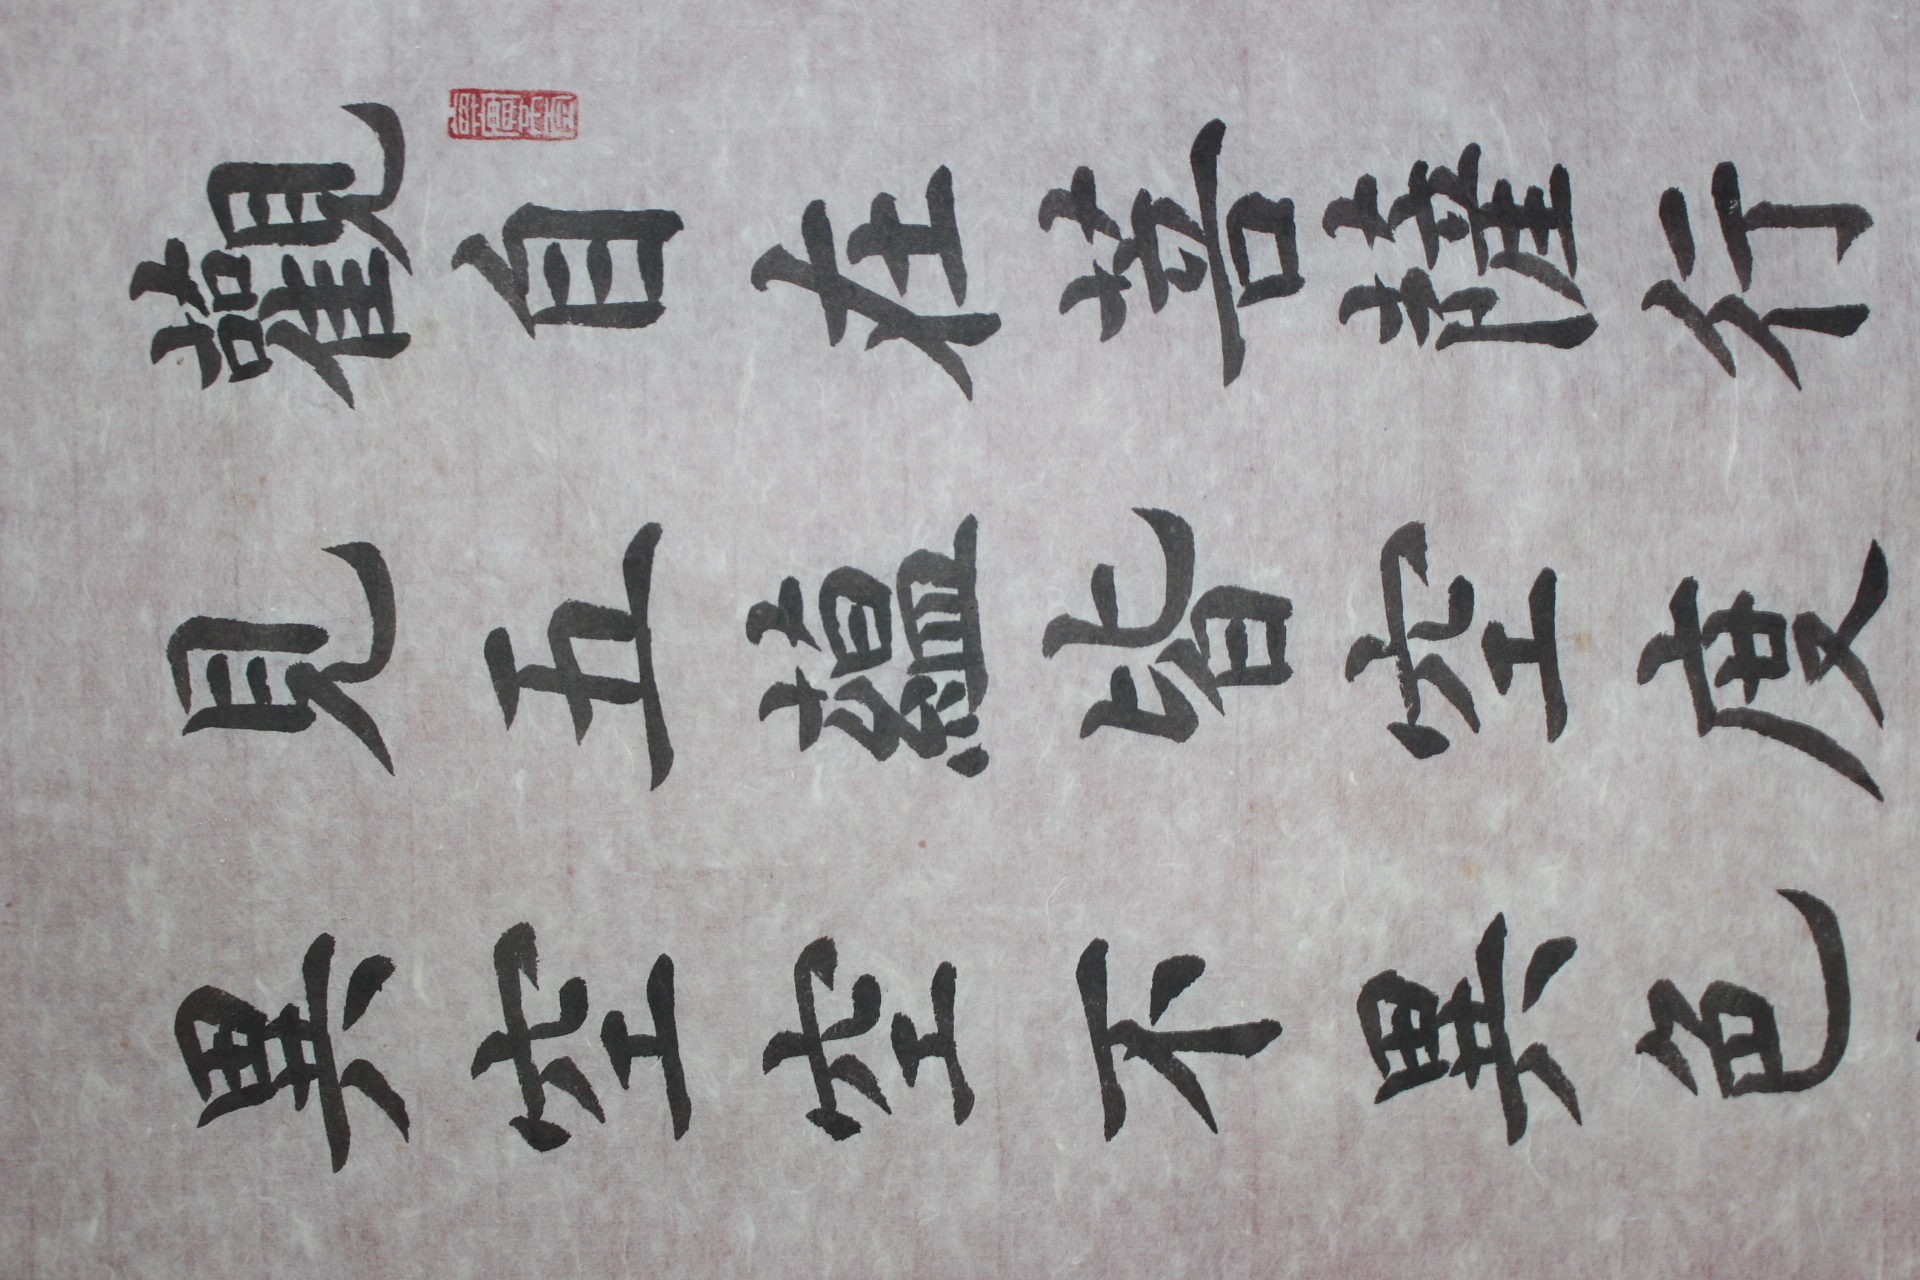 觀自在菩薩行
見五蘊皆空度
異空空不異色